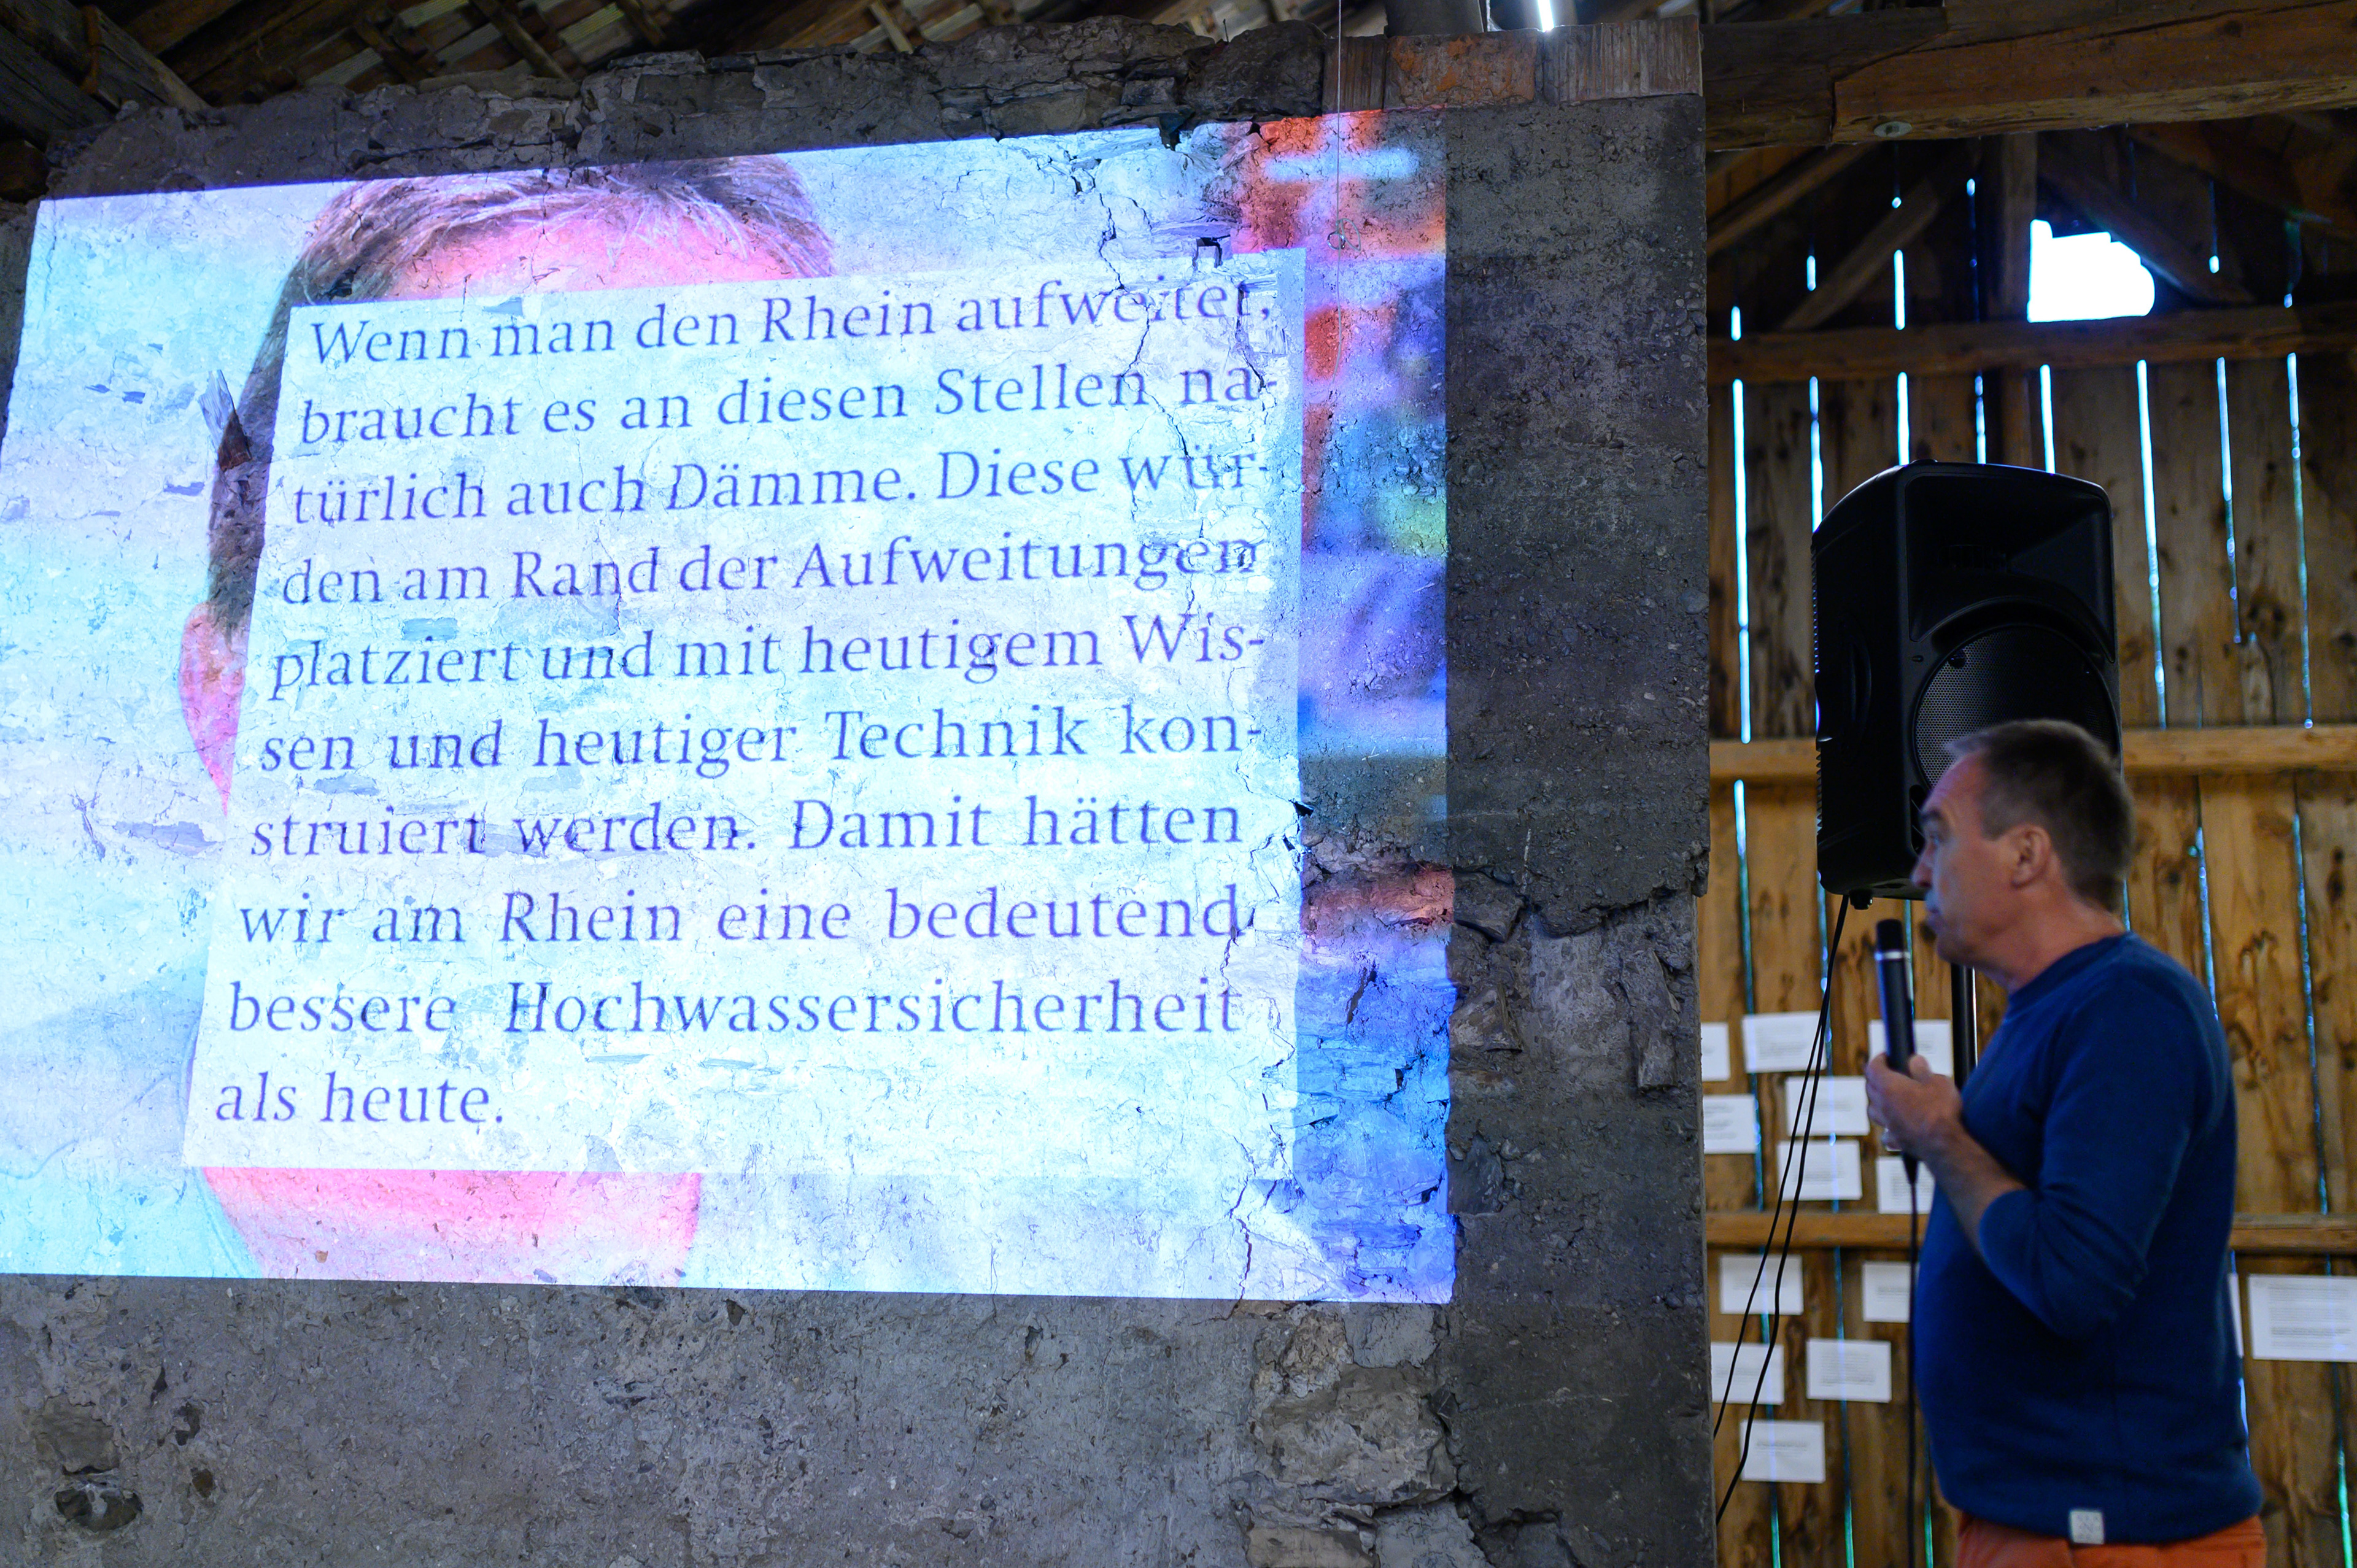 Wenn man den Rhein aufweitet,
braucht es an diesen Stellen na-
türlich auch Dämme. Diese wür-
den am Rand der Aufweitungen
platziert und mit heutigem Wis-
sen und heutiger Technik kon-
struiert werden. Damit hätten
wir am Rhein eine bedeutend
bessere Hochwassersicherheit
als heute.